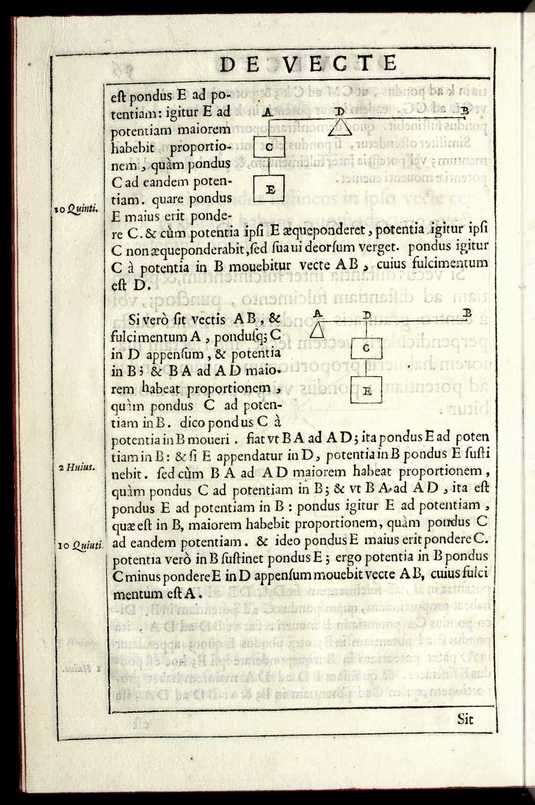 DE VECTE
est pondus E ad po-
tentiam: igitur E ad
potentiam maiorem
habebit proportio-
nem, quàm pondus
C ad eandem poten-
tiam. quare pondus
E maius erit ponde-
re C. & cùm potentia ipsi E æqueponderet, potentia igitur ipsi
C non æqueponderabit, sed sua ui deorsum verget. pondus igitur
C à potentia in B mouebitur vecte AB, cuius fulcimentum
est D.
10 Quinti.
A D B
C
E
Si verò sit vectis AB, &
fulcimentum A, pondusq; C
in D appensum, & potentia
in B; & BA ad AD maio-
rem habeat proportionem,
quàm pondus C ad poten-
tiam in B. dico pondus C à
potentia in B moueri. fiat vt BA ad AD; ita pondus E ad poten
tiam in B: & si E appendatur in D, potentia in B pondus E susti
nebit. sed cùm BA ad AD maiorem habeat proportionem,
quàm pondus C ad potentiam in B; & vt BA ad AD, ita est
pondus E ad potentiam in B: pondus igitur E ad potentiam,
quæ est in B, maiorem habebit proportionem, quàm pondus C
ad eandem potentiam. & ideo pondus E maius erit pondere C.
potentia verò in B sustinet pondus E; ergo potentia in B pondus
C minus pondere E in D appensum mouebit vecte AB, cuius fulci
mentum est A.
2 Huius.
10 Quinti
A D B
C
E
Sit